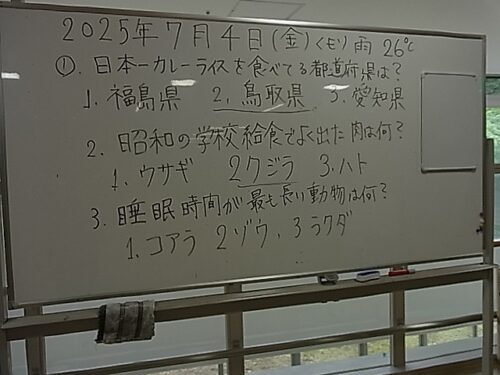 2025年7月4日(金)くもり雨 26℃
①.日本一カレーライスを食べてる都道府県は?
1.福島県 2.鳥取県 3.愛知県
2.昭和の学校給食でよく出た肉は何?
1.ウサギ 2クジラ 3.ハト
3.睡眠時間が最も長い動物は何?
1.コアラ 2ゾウ、3ラクダ